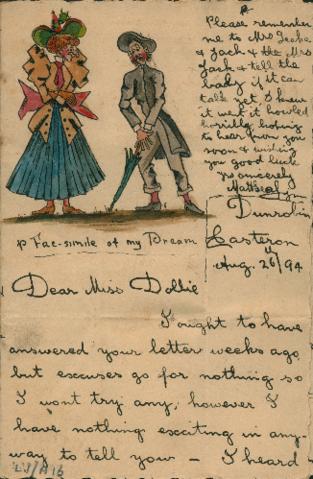 Please remember
me to Mrs
& Jack & the Mrs
Jack & tell the
baby if it can
talk yet I knew
it well it howled
horribly hoping
to hear from you
soon & wishing
you good luck
yrs sincerely
Dunrobin
Casteron
Aug. 26th/94
Fac-simile of my Dream
Dear Miss Dollie
I ought to have
answered your letter weeks ago
but excuses go for nothing so
I wont try any, however I
have nothing exciting in any
way to tell you — I heard